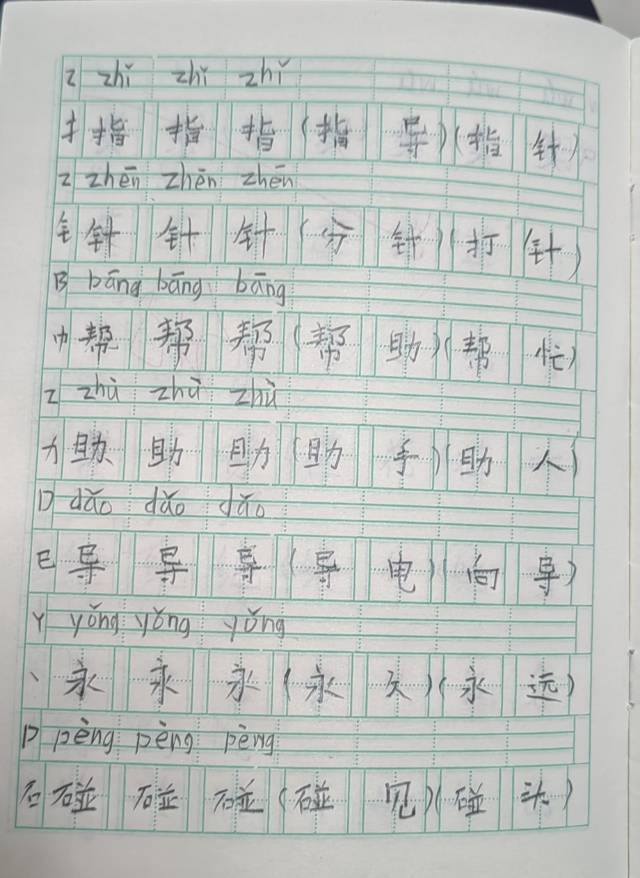 Z zhǐ zhǐ zhǐ
扌 指 指 指 (指 导) (指 针)
Z zhēn zhēn zhēn
钅 针 针 针 (分 针) (打 针)
B bāng bāng bāng
巾 帮 帮 帮 (帮 助) (帮 忙)
Z zhù zhù zhù
力 助 助 助 (助 手) (助 人)
D dǎo dǎo dǎo
巳 导 导 导 (导 电) (向 导)
Y yǒng yǒng yǒng
丶 永 永 永 (永 久) (永 远)
P pèng pèng pèng
石 碰 碰 碰 (碰 见) (碰 头)